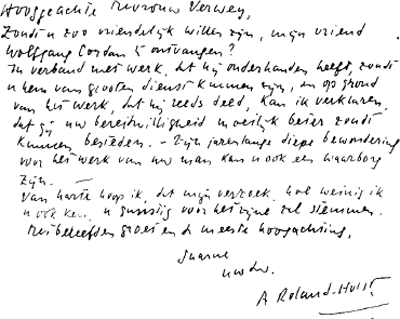 Hooggeachte Mevrouw Verwey,
Zoudt u zoo vriendelijk willen zijn, mijn vriend
Wolfgang Cordan te ontvangen?
In verband met werk, dat hij onderhanden heeft, zoudt
u hem van grooten dienst kunnen zijn, en op grond
van het werk, dat hij reeds deed, kan ik verklaren,
dat gij uw bereidwilligheid moeilijk beter zoudt
kunnen besteden. – Zijn jarenlange diepe bewondering
voor het werk van uw man kan u ook een waarborg
zijn. —
Van harte hoop ik, dat mijn verzoek, hoe weinig ik
u ook ken, u gunstig voor het zijne zal stemmen.
Met beleefden groet en de meeste hoogachting,
gaarne
uw dw.
A Roland-Holst